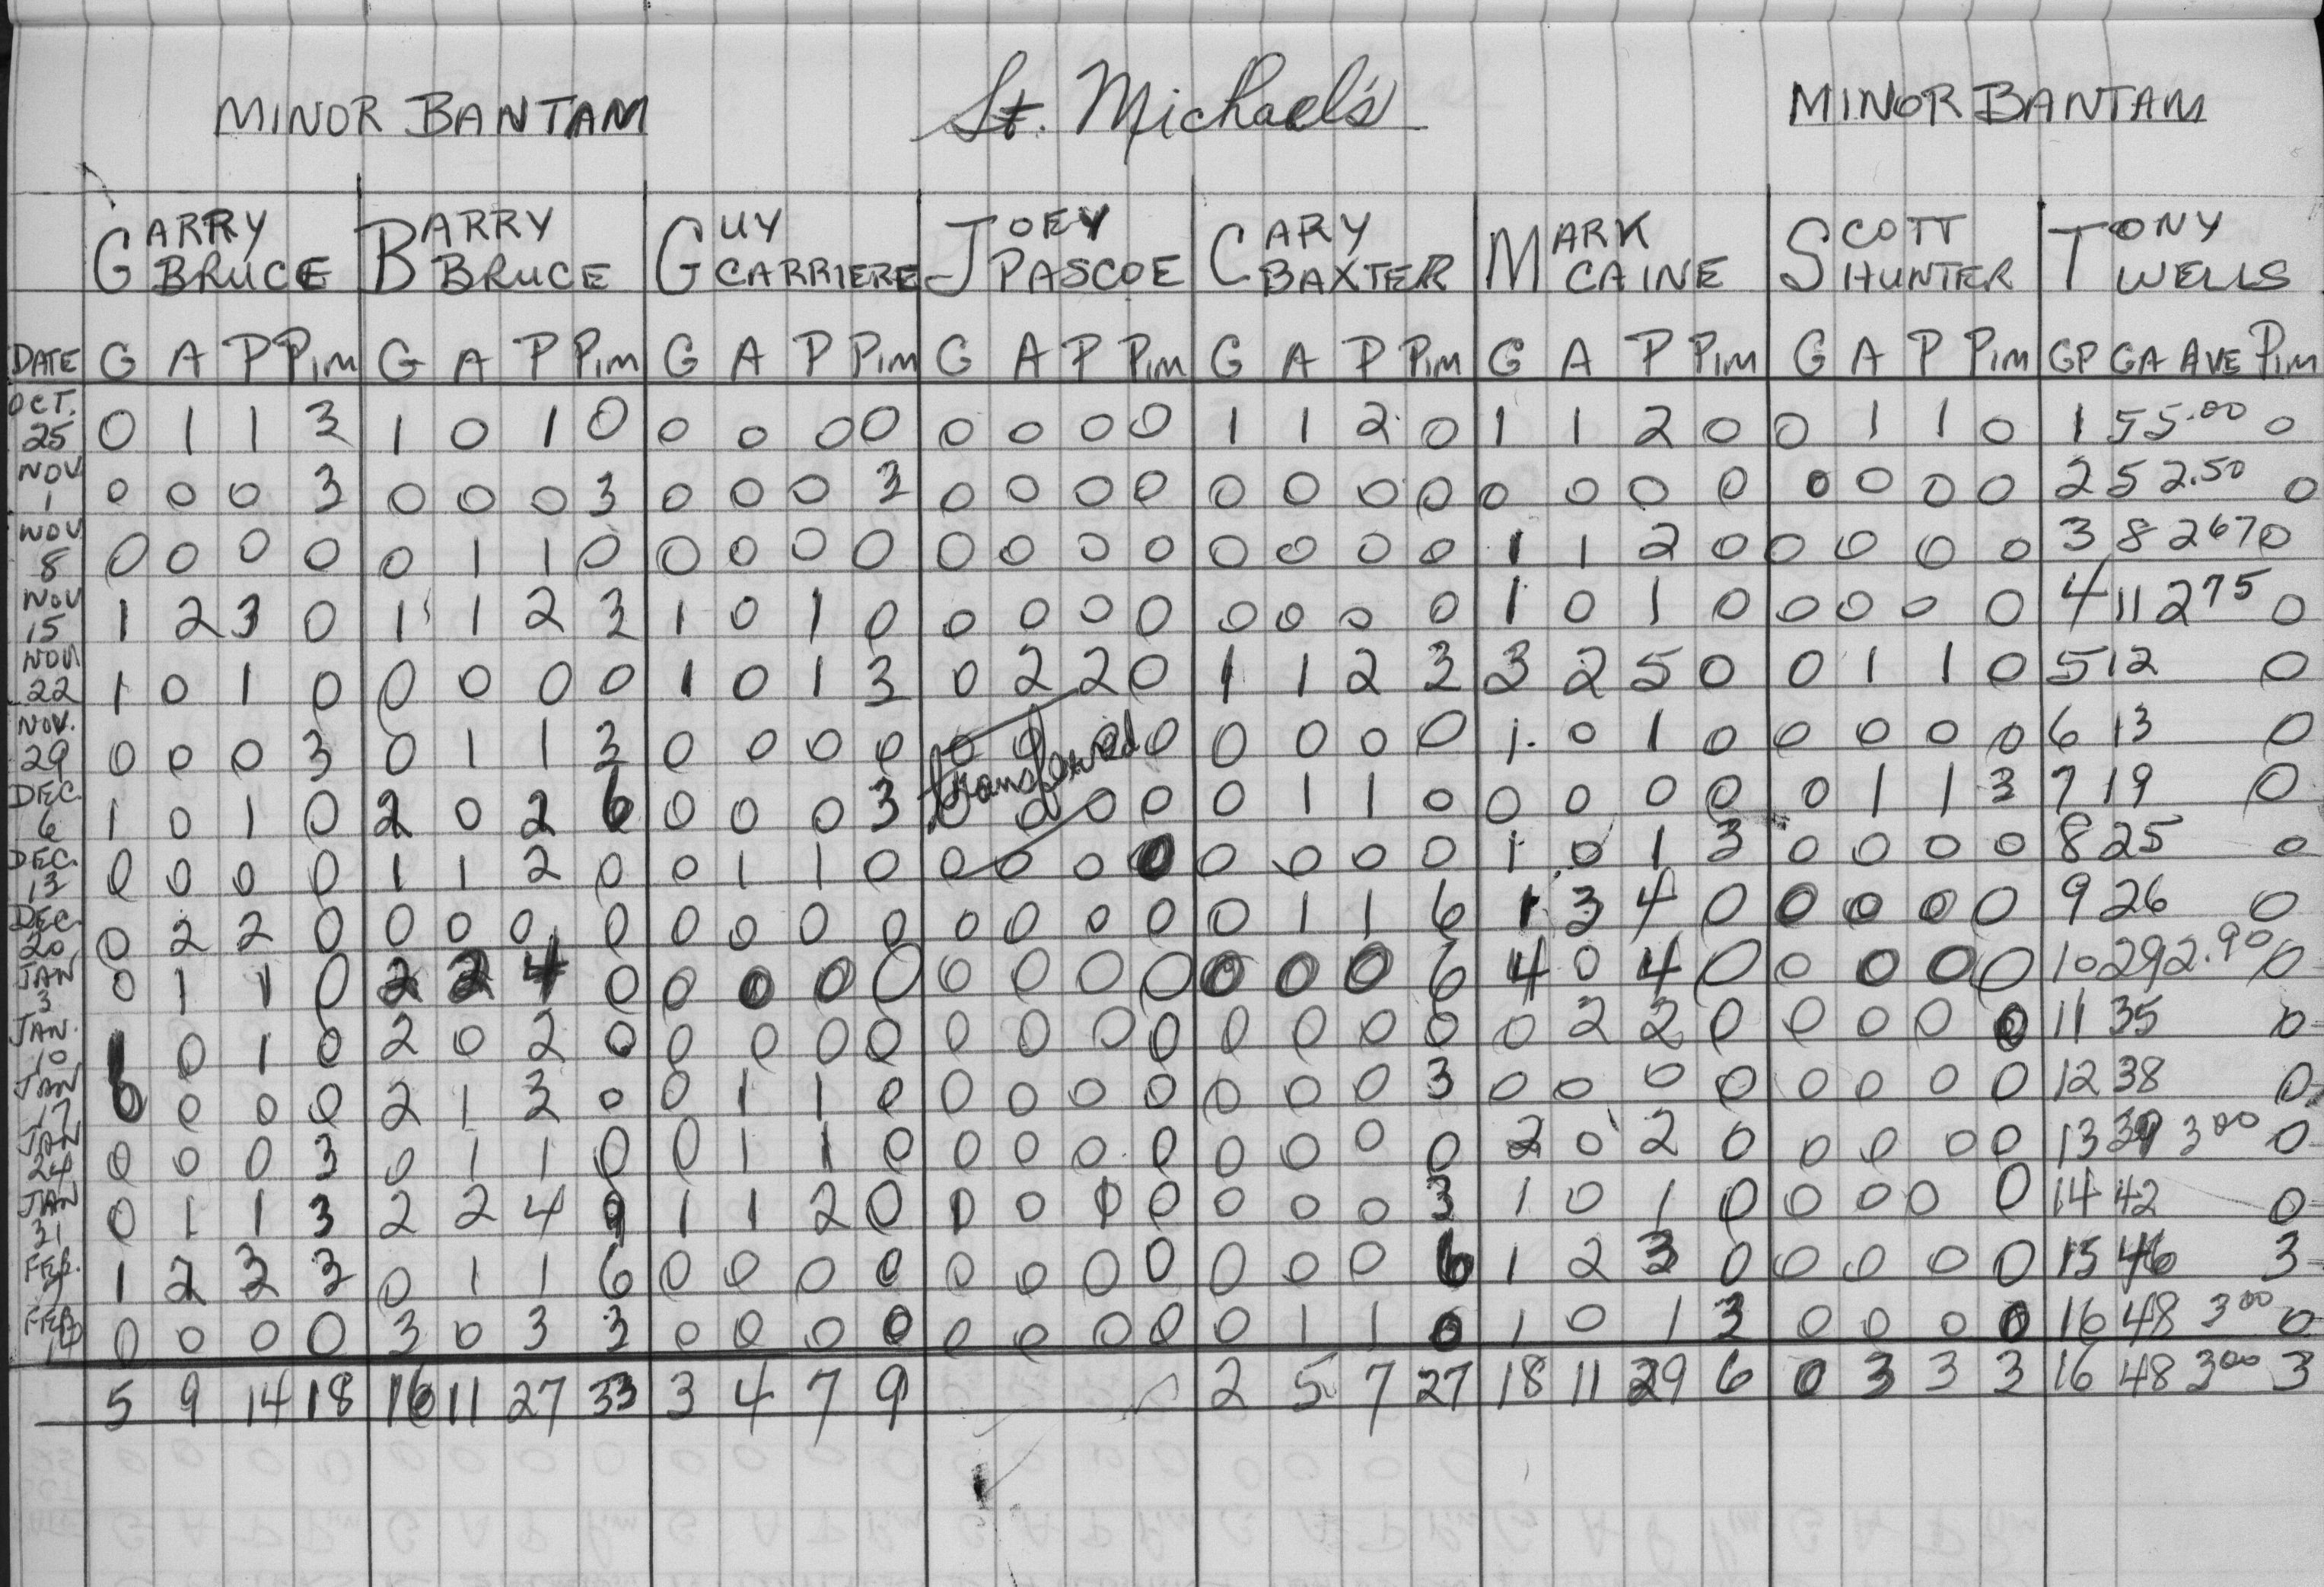 MINOR BANTAM St. Michael's MINOR BANTAM
GARRY BRUCE BARRY BRUCE GUY CARRIERE JOEY PASCOE CARY BAXTER MARK CAINE SCOTT HUNTER TONY WELLS
DATE G A P PIM G A P PIM G A P PIM G A P PIM G A P PIM G A P PIM G A P PIM GP GA AVE PIM
OCT. 25 0 1 1 3 1 0 1 0 0 0 0 0 0 0 0 0 1 1 2 0 1 1 2 0 0 1 1 0 1 5 5.00 0
NOV 1 0 0 0 3 0 0 0 3 0 0 0 3 0 0 0 0 0 0 0 0 0 0 0 0 0 0 0 0 2 5 2.50 0
NOV 8 0 0 0 0 0 1 1 0 0 0 0 0 0 0 0 0 0 0 0 0 1 1 2 0 0 0 0 0 3 8 267 0
NOV 15 1 2 3 0 1 1 2 3 1 0 1 0 0 0 0 0 0 0 0 0 1 0 1 0 0 0 0 0 4 11 275 0
NOV 22 1 0 1 0 0 0 0 0 1 0 1 3 0 2 2 0 1 1 2 3 3 2 5 0 0 1 1 0 5 12 0
NOV. 29 0 0 0 3 0 1 1 3 0 0 0 0 0 0 0 0 0 0 0 0 1 0 1 0 0 0 0 0 6 13 0
transferred
DEC. 6 1 0 1 0 2 0 2 6 0 0 0 3 0 0 0 0 0 1 1 0 0 0 0 0 0 1 1 3 7 19 0
DEC. 13 0 0 0 0 1 1 2 0 0 1 1 0 0 0 0 0 0 0 0 0 1 0 1 3 0 0 0 0 8 25 0
DEC. 20 0 2 2 0 0 0 0 0 0 0 0 0 0 0 0 0 0 1 1 6 1 3 4 0 0 0 0 0 9 26 0
JAN 3 0 1 1 0 2 2 4 0 0 0 0 0 0 0 0 0 0 0 0 6 4 0 4 0 0 0 0 0 10 29 2.90 0
JAN. 10 1 0 1 0 2 0 2 0 0 0 0 0 0 0 0 0 0 0 0 0 0 2 2 0 0 0 0 0 11 35 0
JAN 17 0 0 0 0 2 1 3 0 0 1 1 0 0 0 0 0 0 0 0 3 0 0 0 0 0 0 0 0 12 38 0
JAN 24 0 0 0 3 0 1 1 0 0 1 1 0 0 0 0 0 0 0 0 0 2 0 2 0 0 0 0 0 13 39 300 0
JAN 31 0 1 1 3 2 2 4 9 1 1 2 0 1 0 1 0 0 0 0 3 1 0 1 0 0 0 0 0 14 42 0
FEB. 7 1 2 3 3 0 1 1 6 0 0 0 0 0 0 0 0 0 0 0 6 1 2 3 0 0 0 0 0 15 46 3
FEB 14 0 0 0 0 3 0 3 3 0 0 0 0 0 0 0 0 0 1 1 0 1 0 1 3 0 0 0 0 16 48 300 0
5 9 14 18 16 11 27 33 3 4 7 9 2 5 7 27 18 11 29 6 0 3 3 3 16 48 300 3